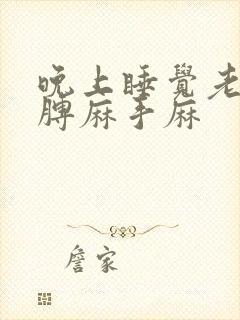 晚上睡覺老
膊麻手麻
詹家